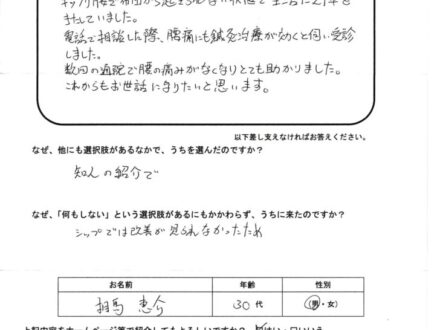 ギックリ腰で布団から起きられない状態で生活に支障を
きたしていました。
電話で相談した際、腰痛にも鍼灸治療が効くと伺い受診
しました。
数回の通院で腰の痛みがなくなりとても助かりました。
これからもお世話になりたいと思います。
以下差し支えなければお答えください。
なぜ、他にも選択肢があるなかで、うちを選んだのですか?
知人の紹介で
なぜ、「何もしない」という選択肢があるにもかかわらず、うちに来たのですか?
シップでは改善が見られなかったため
お名前 年齢 性別
相馬 恵介 30代 男・女)
上記内容をホームページ等で紹介してもよろしいですか?